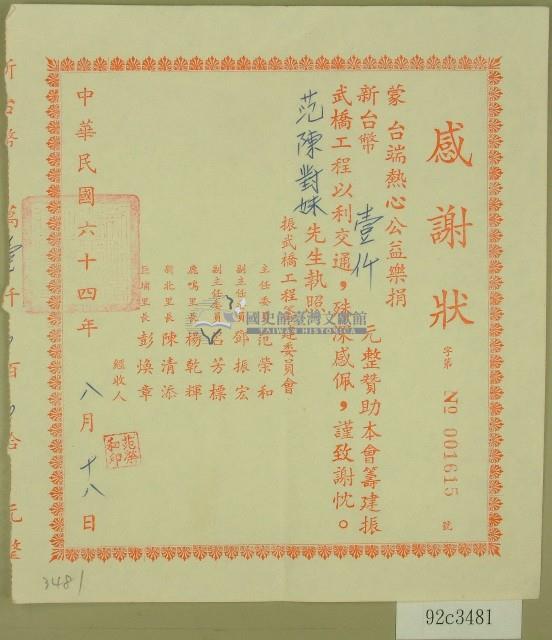 感謝狀
字第 No 001615 號
蒙 台端熱心公益樂捐
新台幣 壹仟 元整贊助本會籌建振
武橋工程以利交通,殊深感佩,謹致謝忱。
范陳對妹 先生執照
振武橋工程籌建委員會
主任委員 范榮和
副主任委員 鄧振宏
副主任委員 呂芳標
鹿鳴里長 楊乾輝
里長 陳清添
巨埔里長 彭煥章
經收人
范榮和印
中華民國六十四年 八月 十八日
新台幣 萬 壹 仟 百 拾 元整
國史館臺灣文獻館
TAIWAN HISTORICA
3481
92c3481